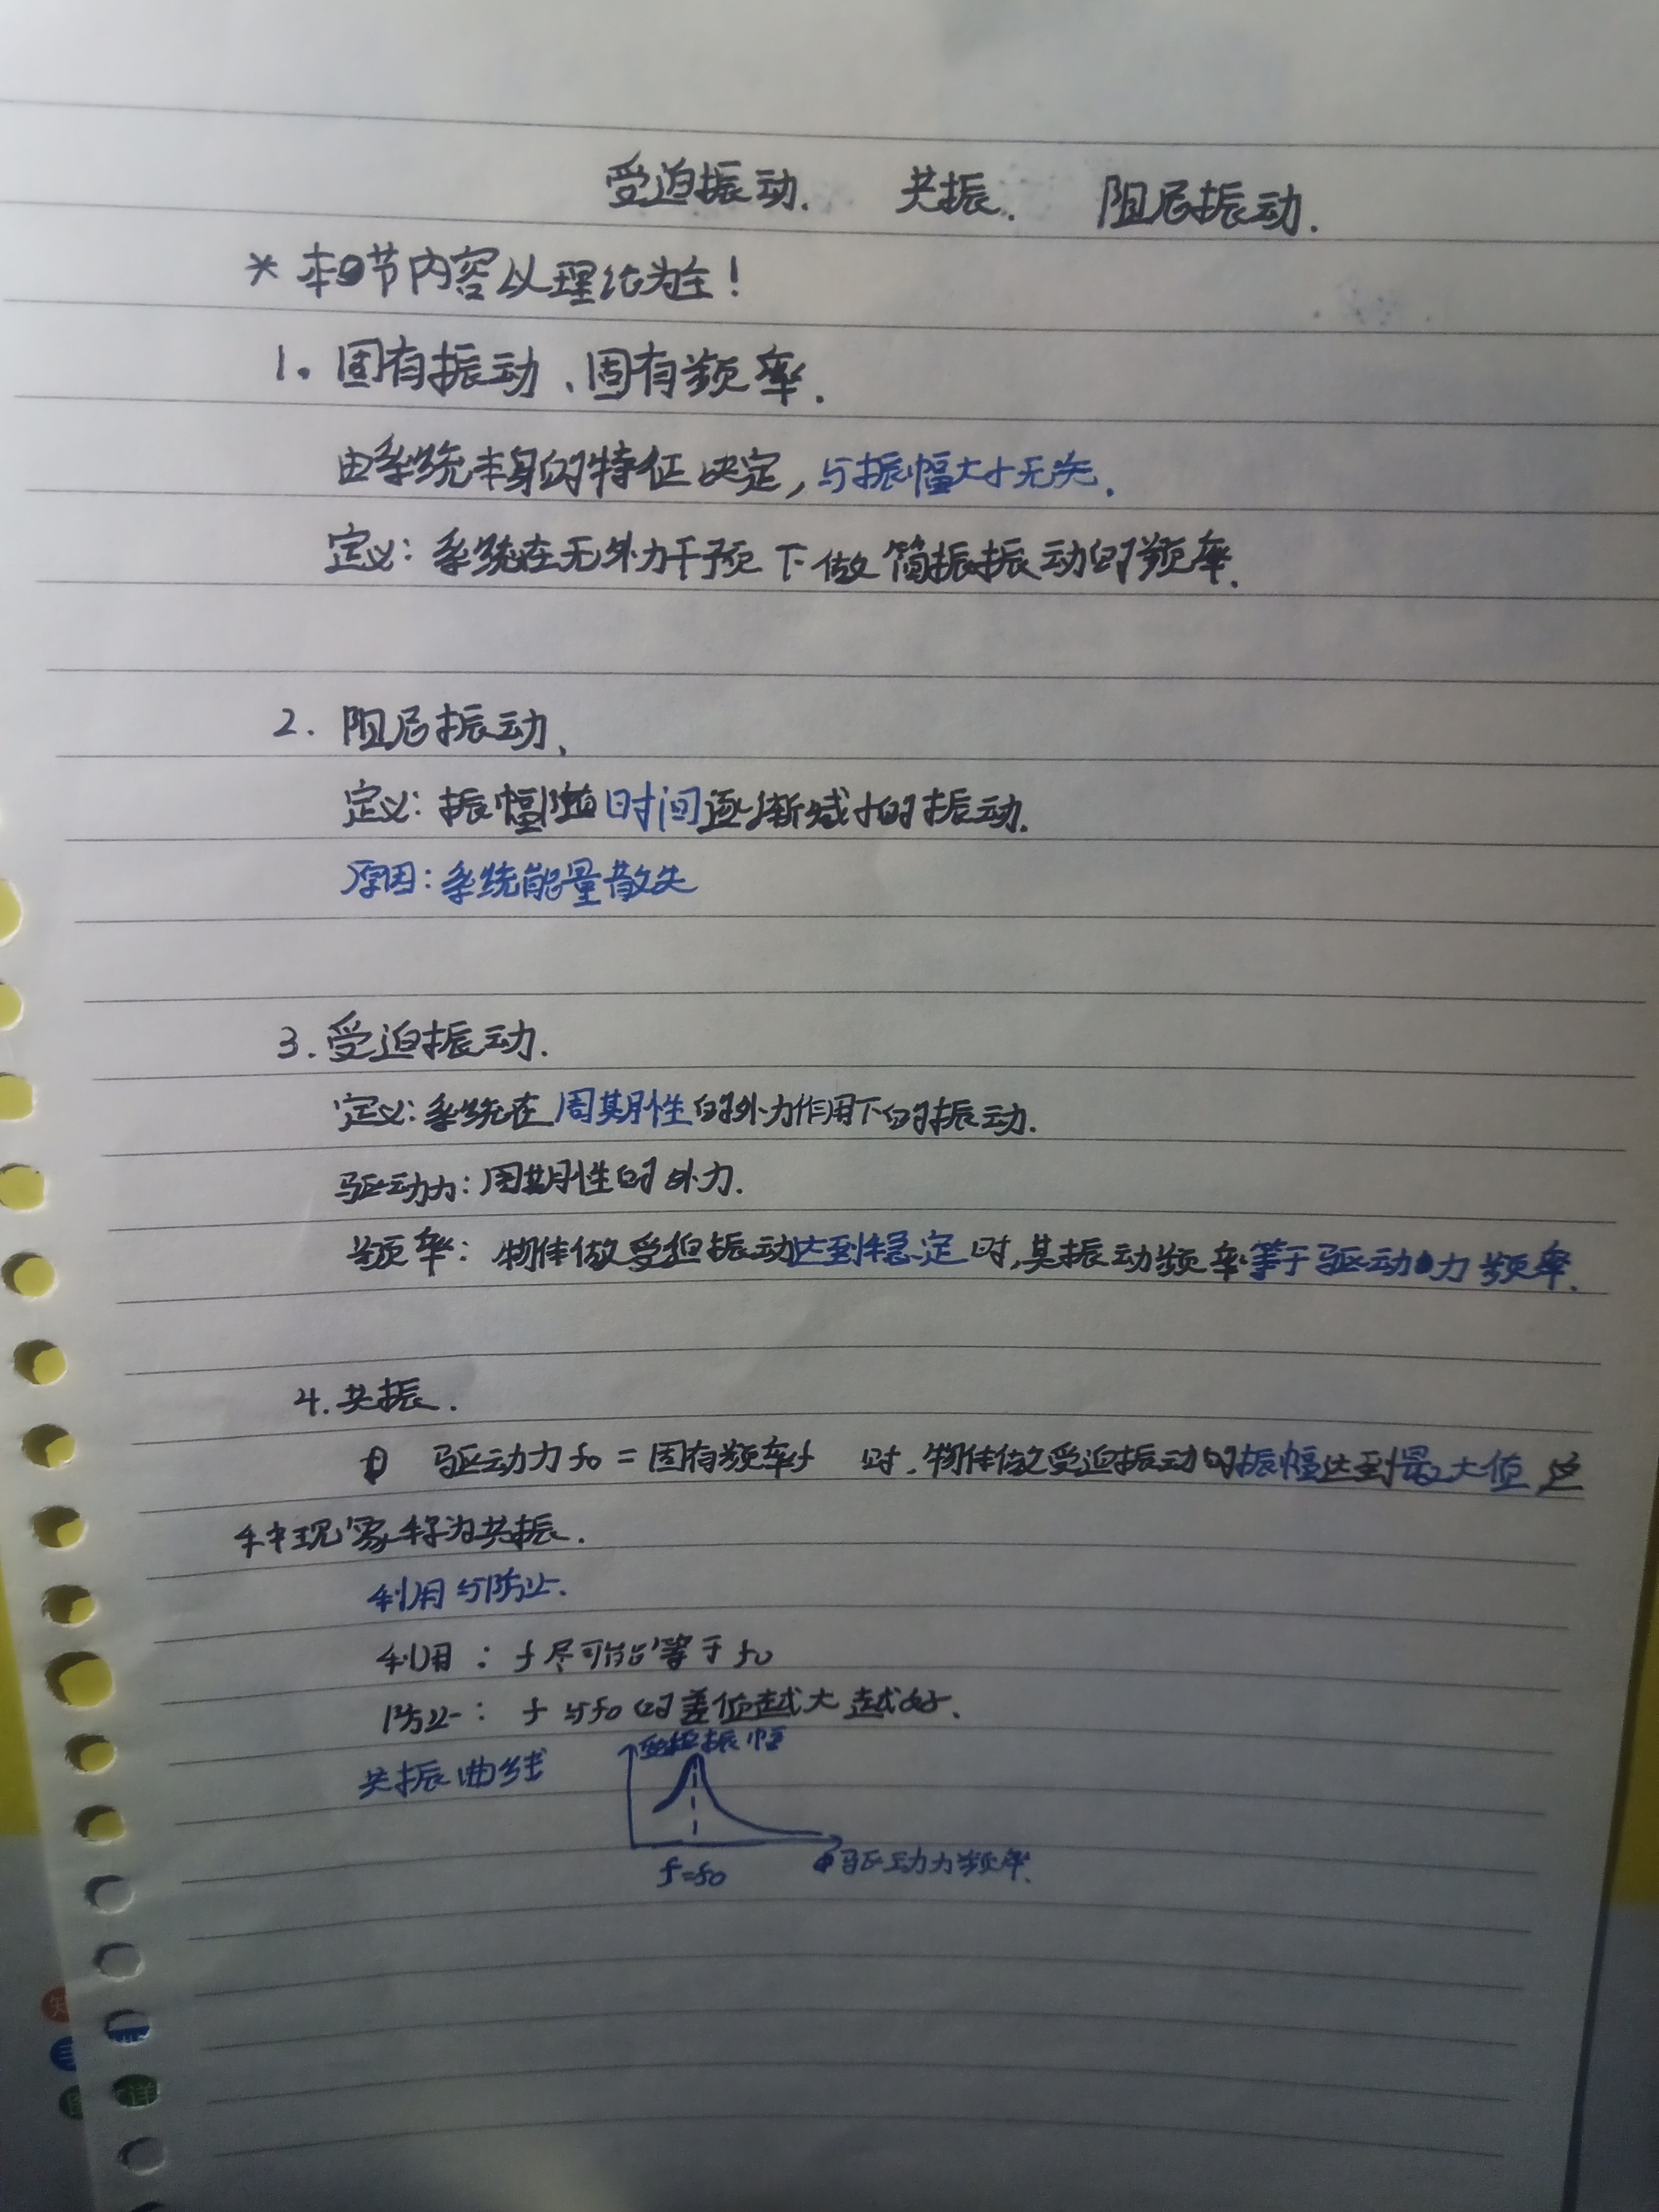 受迫振动. 共振. 阻尼振动.
* 本节内容以理论为主!
1. 固有振动、固有频率.
由系统本身的特征决定,与振幅大小无关.
定义:系统在无外力干预下做简振振动的频率.
2. 阻尼振动、
定义:振幅随时间逐渐减小的振动.
原因:系统能量散失
3. 受迫振动.
定义:系统在周期性的外力作用下的振动.
驱动力:周期性的外力.
频率:物体做受迫振动达到稳定时,其振动频率等于驱动力频率.
4. 共振.
驱动力f0=固有频率f 时,物体做受迫振动的振幅达到最大值 这
种现象称为共振.
利用与防止.
利用:f尽可能等于f0
防止:f与f0的差值越大越好.
共振曲线
振幅
f=f0
驱动力频率.
知
详